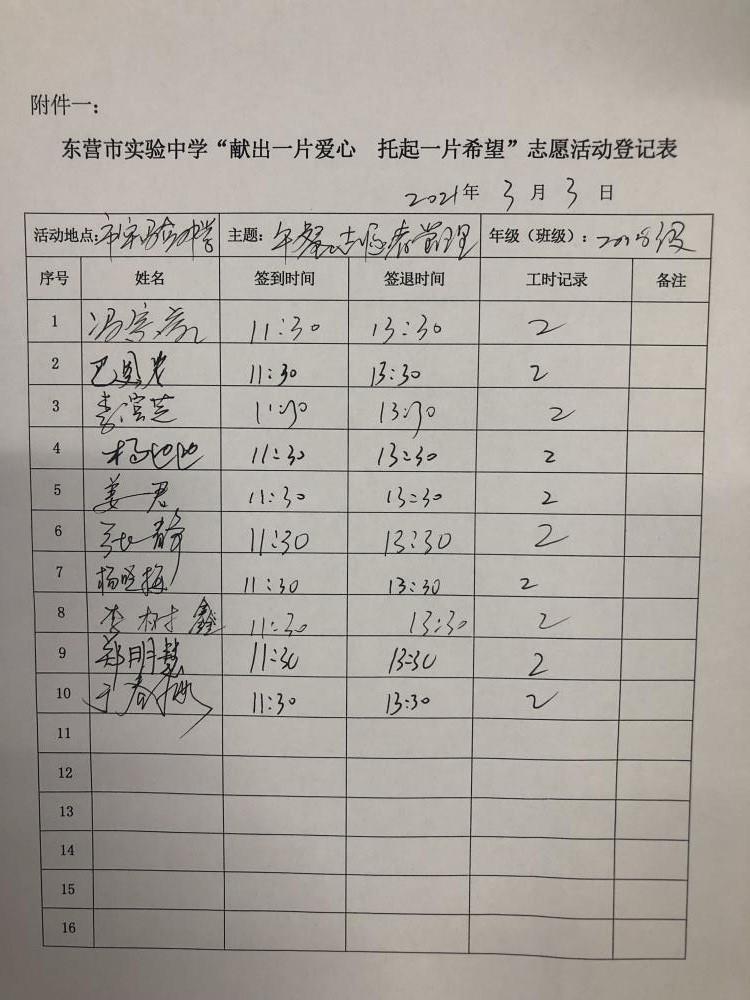 附件一：
东营市实验中学“献出一片爱心 托起一片希望”志愿活动登记表
2021年 3 月 3 日
活动地点：市实验中学 主题：午餐志愿者管理 年级（班级）：2018级
序号 姓名 签到时间 签退时间 工时记录 备注
1 冯 11:30 13:30 2
2 巴 11:30 13:30 2
3 李滨芝 11:30 13:30 2
4 杨艳艳 11:30 13:30 2
5 姜君 11:30 13:30 2
6 张静 11:30 13:30 2
7 杨晓梅 11:30 13:30 2
8 李树鑫 11:30 13:30 2
9 郑明慧 11:30 13:30 2
10 于春 11:30 13:30 2
11
12
13
14
15
16